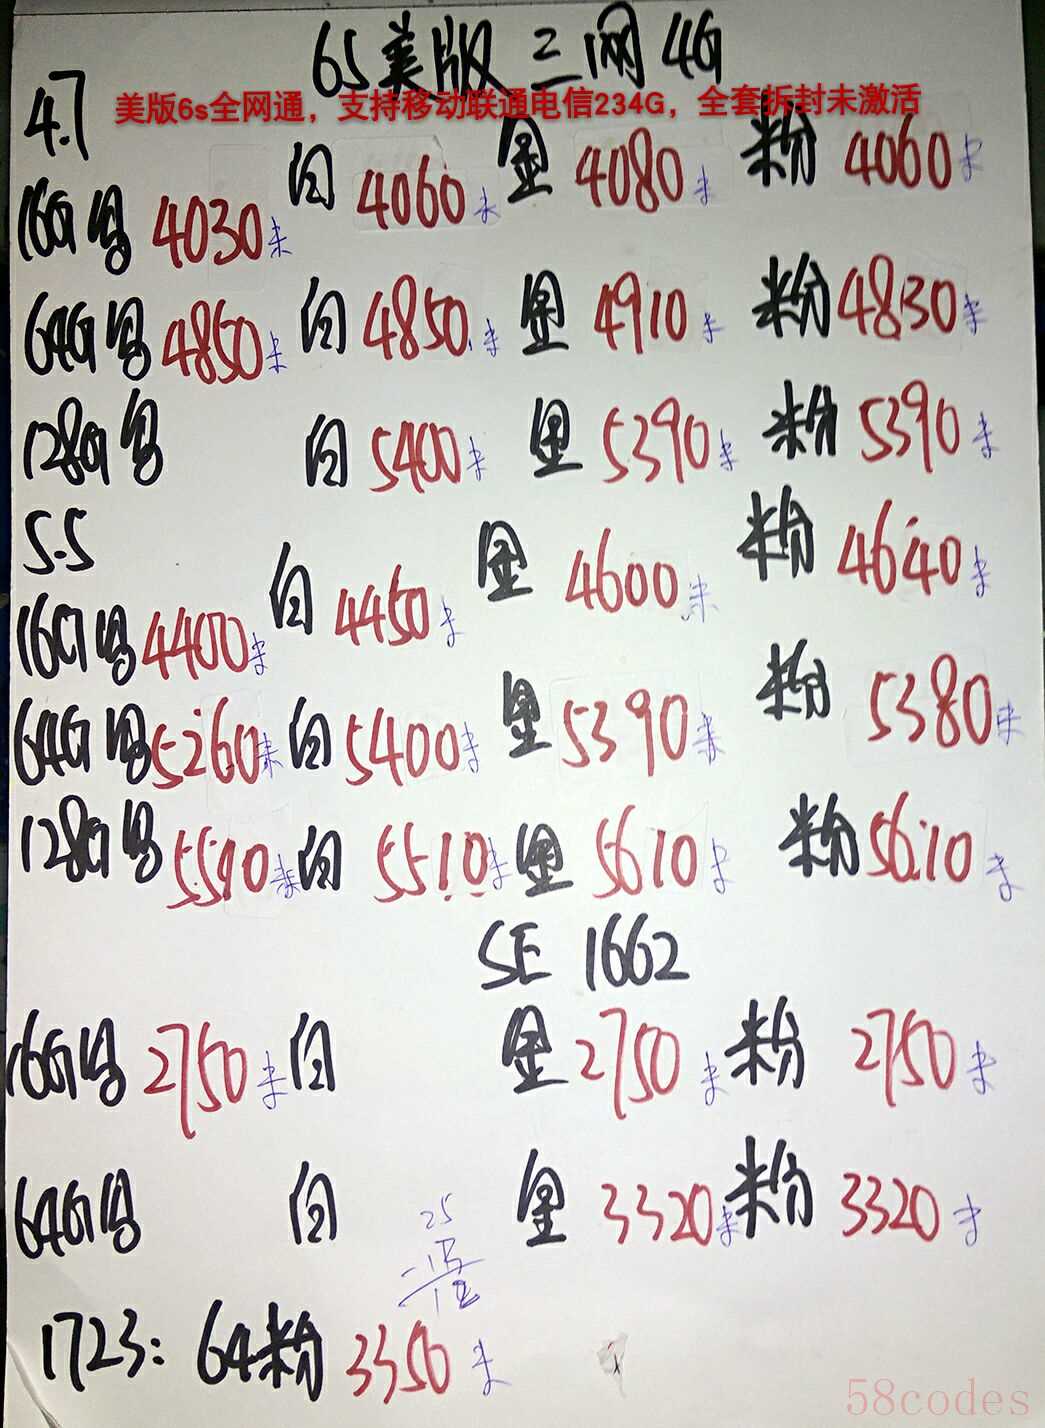 6S美版三网4G
美版6s全网通，支持移动联通电信234G，全套拆封未激活
4.7
16G 黑 4030 白 4060 金 4080 粉 4060
64G 黑 4850 白 4850 金 4910 粉 4830
128G 黑 白 5400 金 5390 粉 5390
5.5
16G 黑 4400 白 4450 金 4600 粉 4640
64G 黑 5260 白 5400 金 5390 粉 5380
128G 黑 5510 白 5510 金 5610 粉 5610
SE 1662
16G 黑 2750 白 金 2750 粉 2750
64G 黑 白 金 3320 粉 3320
25
1723: 64粉 3350
58codes